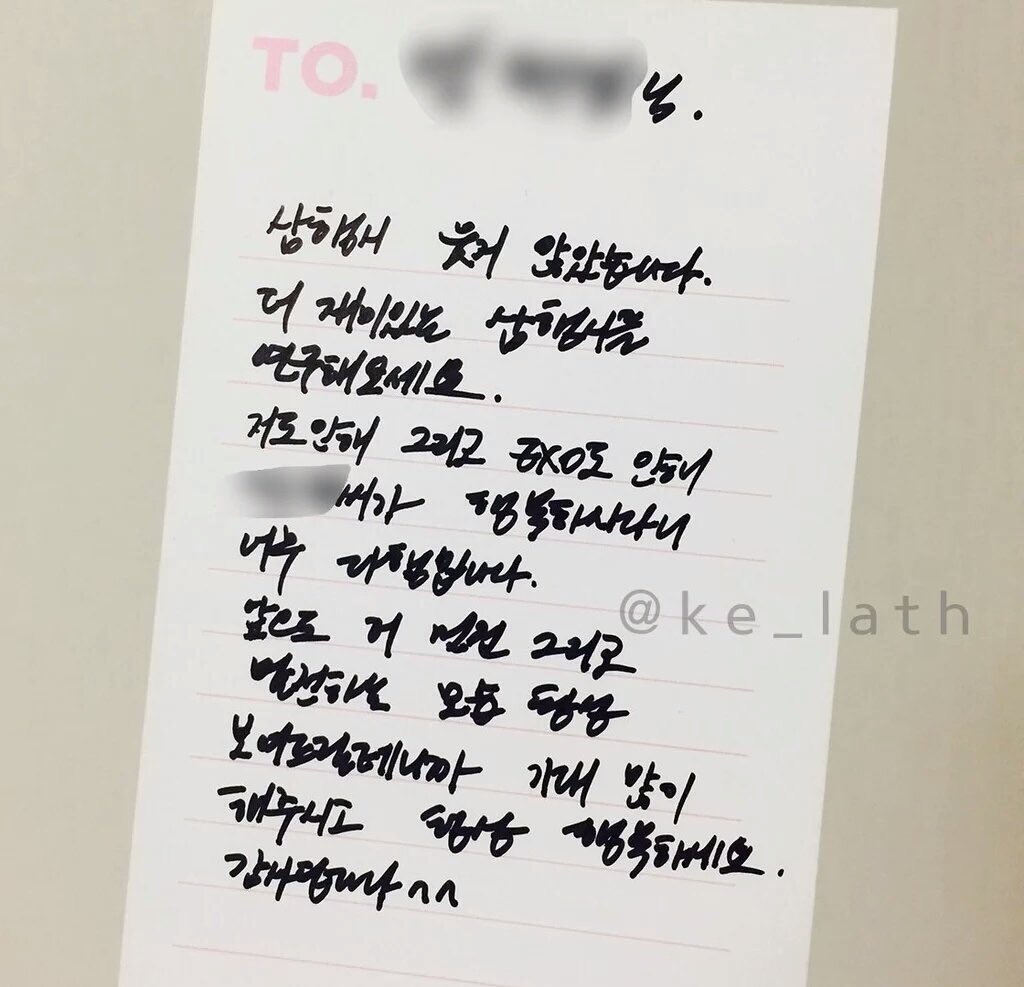 TO. 님.
삼행시 웃기 않았습니다.
더 재미있는 삼행시를
연구해오세요.
저로인해 그리고 EXO로 인해
씨가 행복하시다니
너무 다행입니다.
앞으로 더 멋진 그리고
발전하는 모습 항상
보여드릴테니까 기대 많이
해주시고 항상 행복하세요.
감사합니다^^
@ke_lath